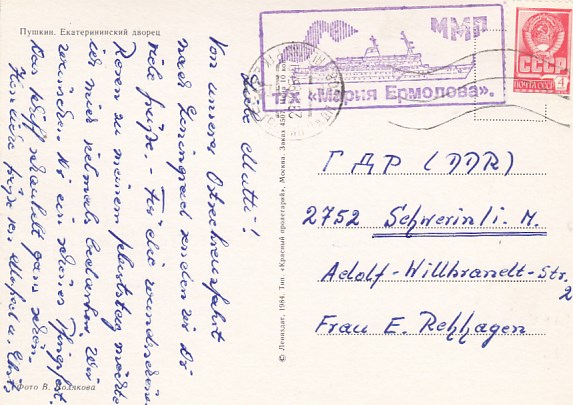 Пушкин. Екатерининский дворец
Liebe Mutti!
Von unserer Ostseekreuzfahrt
nach Leningrad senden wir Dir
viele Grüße. - Für die wunderschönen
zu meinem Geburtstag möchte
ich mich nochmals bedanken. Wir
wünschen Dir ein schönes Pfingstfest.
Das Schiff schaukelt ganz schön.
Herzliche Grüße von
Фото В. Полякова
© Лениздат, 1984. Тип. «Красный пролетарий», Москва. Заказ
ММП
Т/Х «Мария Ермолова».
СССР
ПОЧТА
4
ГДР (DDR)
2752 Schwerin/i. M.
Adolf-Willbrandt-Str.
2
Frau E. Rehhagen